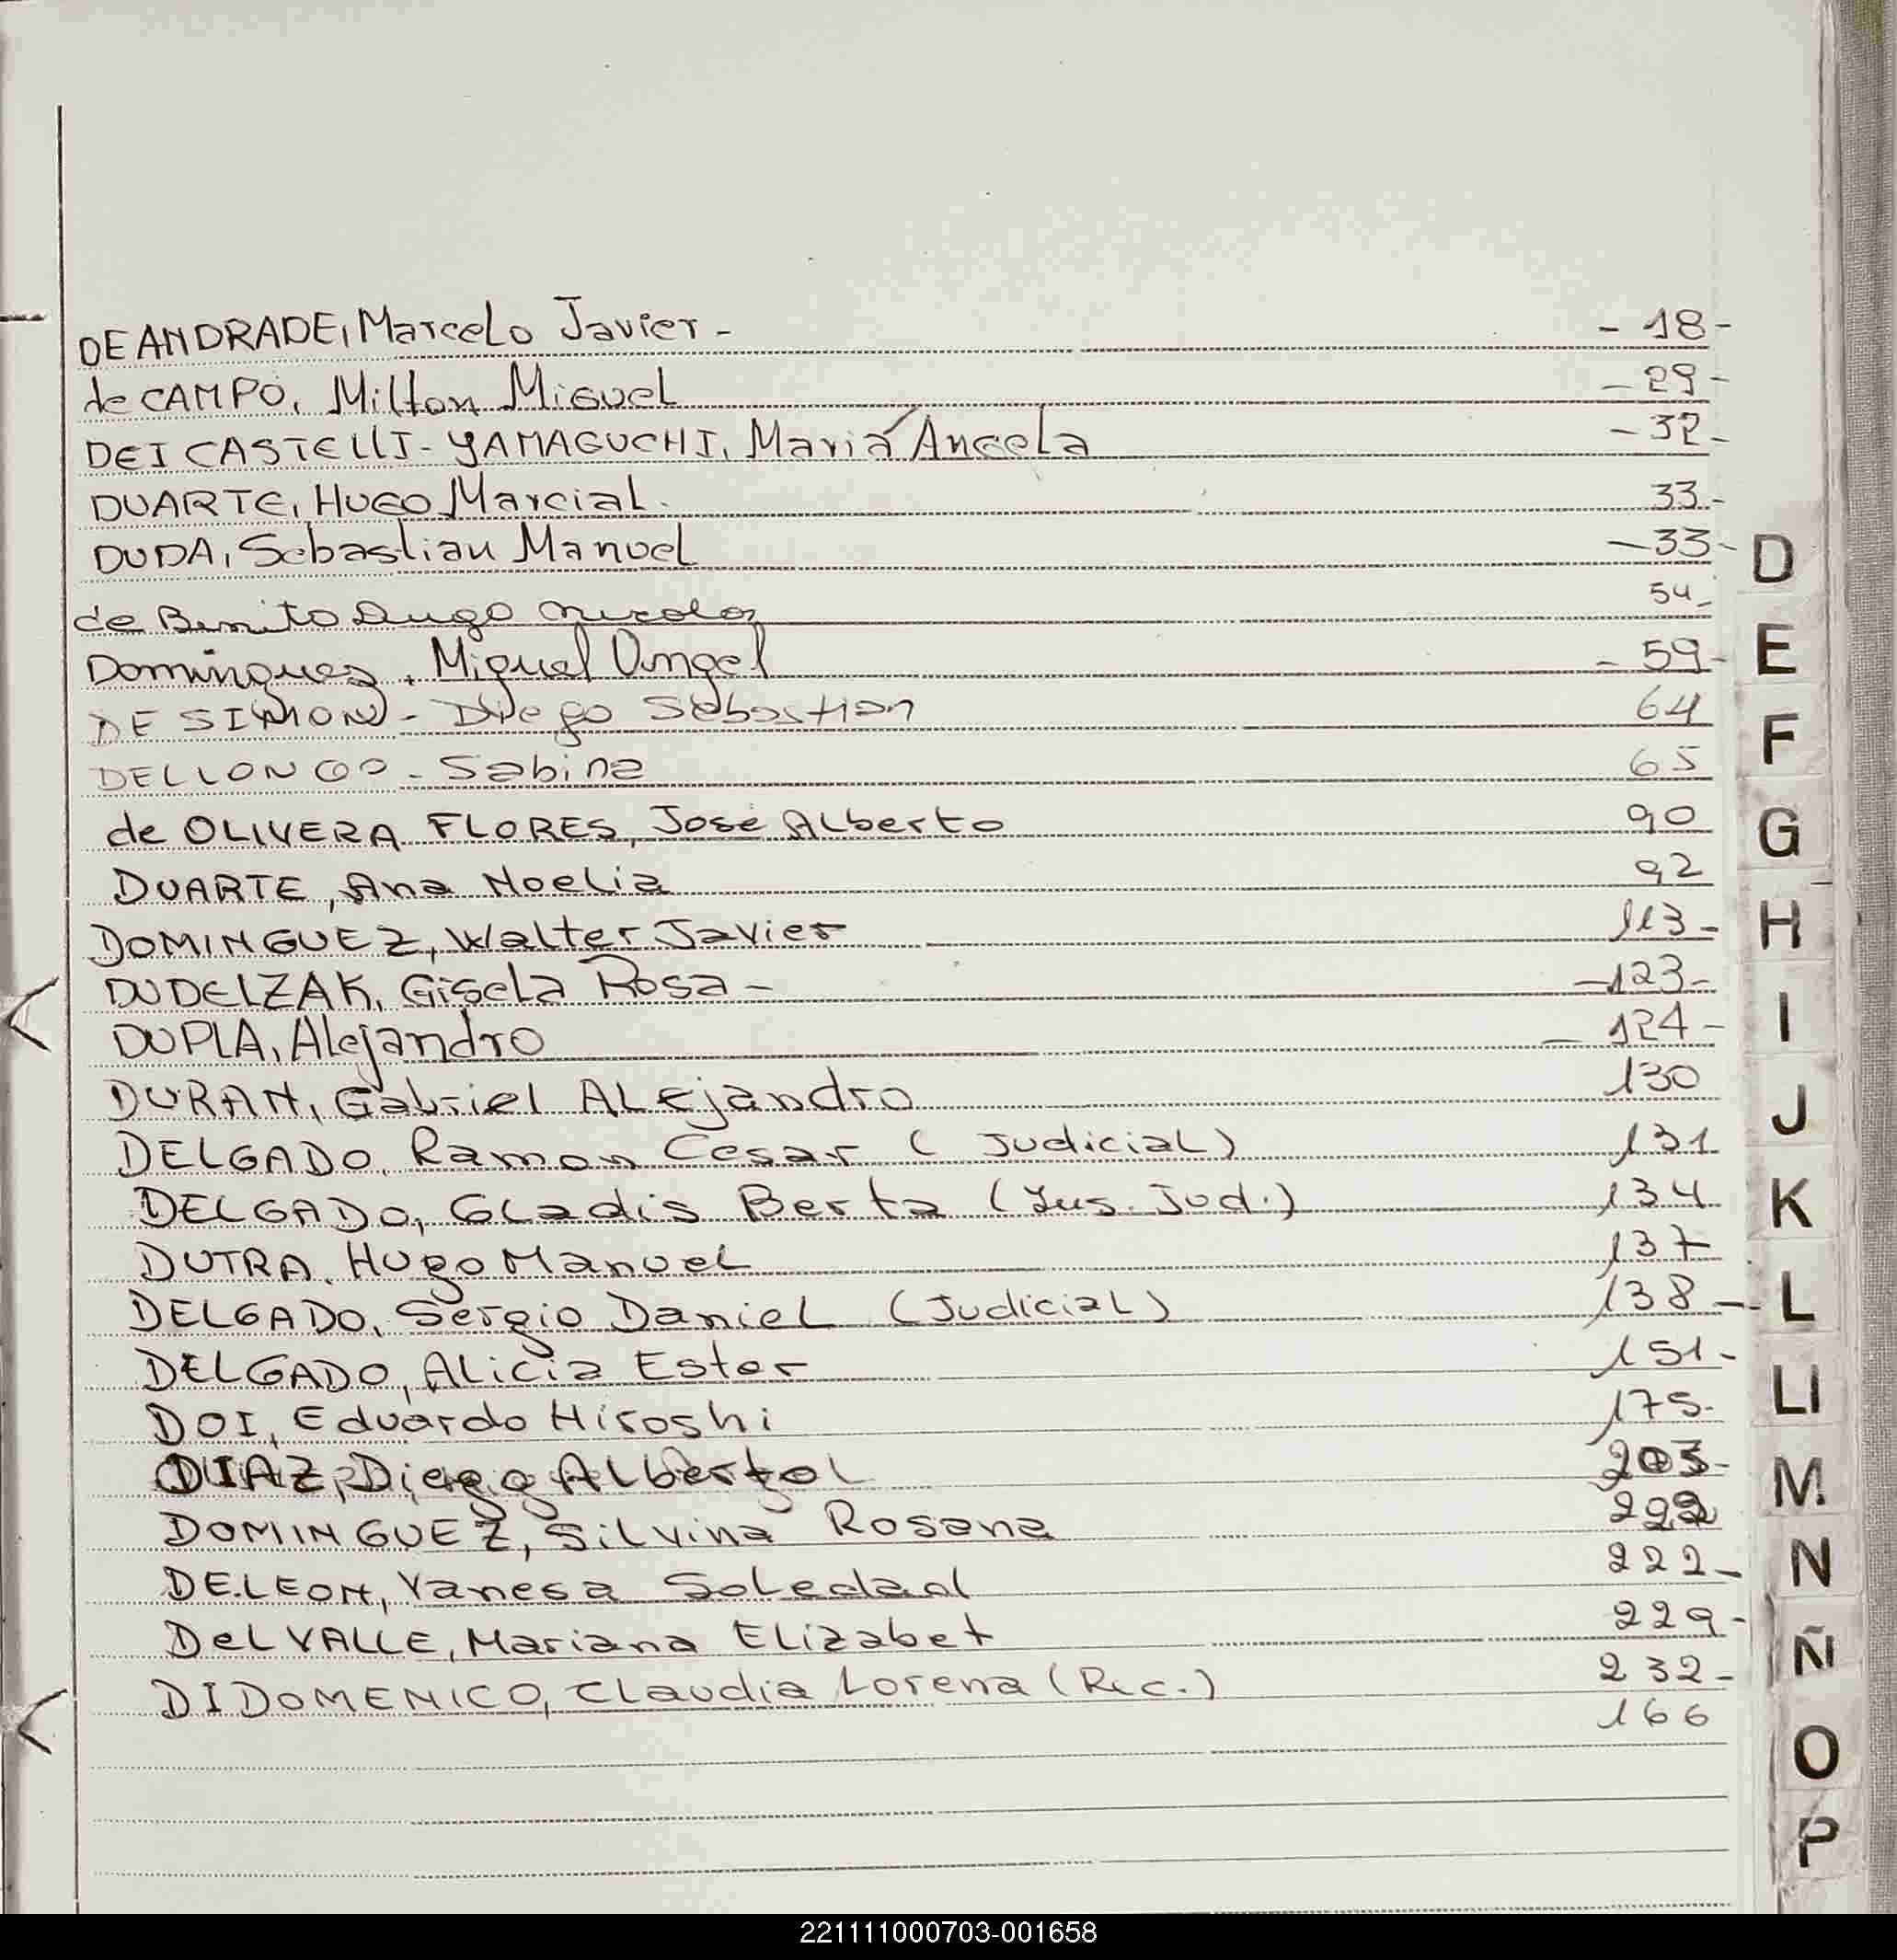 DE ANDRADE, Marcelo Javier - - 18 -
de CAMPO, Milton Miguel - 29 -
DEI CASTELLI - YAMAGUCHI, María Angela - 32 -
DUARTE, HUGO Marcial. 33 -
DUDA, Sebastian Manuel - 33 -
de Benito Dugo Nicolas 54 -
Dominguez, Miguel Angel - 59 -
DE SIMON - Diego Sebastian 64
DELLONGO - Sabina 65
de OLIVERA FLORES, José Alberto 90
DUARTE, Ana Noelia 92
DOMINGUEZ, Walter Javier 113 -
DUDELZAK, Gisela Rosa - - 123 -
DUPLA, Alejandro - 124 -
DURAN, Gabriel ALEjandro 130
DELGADO, Ramon Cesar (Judicial) 131
DELGADO, GLadis Berta (Ius. Jud.) 134
DUTRA, Hugo Manuel 137
DELGADO, Sergio Daniel (Judicial) 138 -
DELGADO, Alicia Ester 151 -
DOI, Eduardo Hiroshi 175 -
DIAZ, Diego Alberto 203 -
DOMINGUEZ, Silvina Rosana 222
DE LEON, Vanesa Soledad 222 -
DeL VALLE, Mariana Elizabet 229 -
DI DOMENICO, Claudia Lorena (Rec.) 232 -
166
D
E
F
G
H
I
J
K
L
Ll
M
N
Ñ
O
P
221111000703-001658